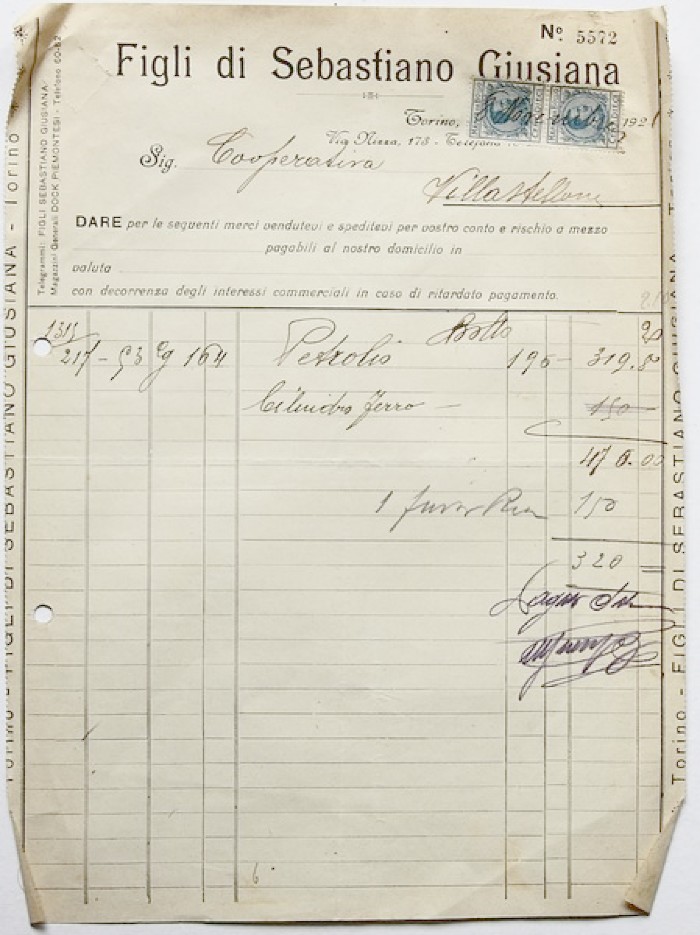 Nº 5572
Figli di Sebastiano Giusiana
Torino, 192
Via Nizza, 173 - Telefono
Sig. Cooperativa
Villastellone
DARE per le seguenti merci vendutevi e speditevi per vostro conto e rischio a mezzo
pagabili al nostro domicilio in
valuta
con decorrenza degli interessi commerciali in caso di ritardato pagamento.
Telegrammi: FIGLI SEBASTIANO GIUSIANA
Magazzini Generali DOCK PIEMONTESI - Telefono 60-62
FIGLI DI SEBASTIANO GIUSIANA - Torino
Torino - FIGLI DI SEBASTIANO GIUSIANA
1313 Bollo 20
217 - 53 164 Petrolio 195 - 319.80
Cilindro ferro - 150
470.00
1 150
320